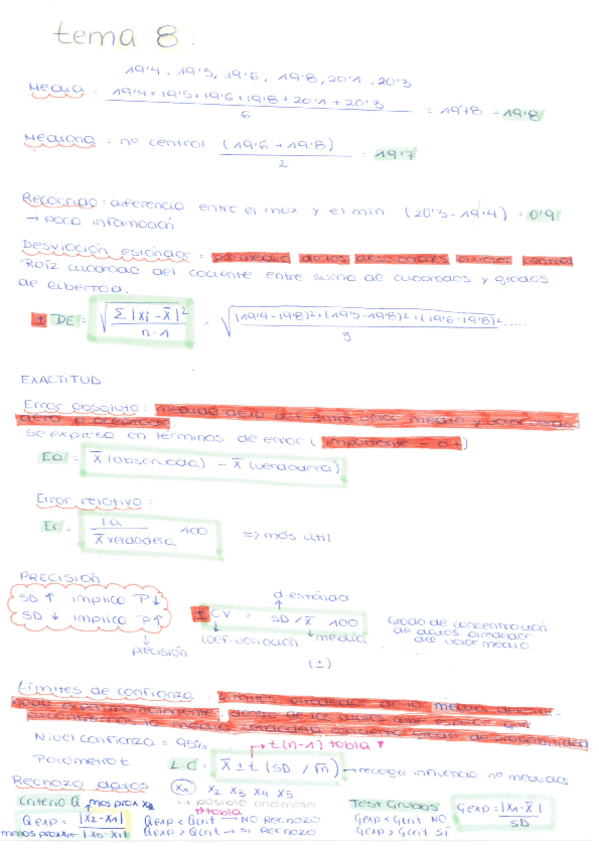 tema 8:
19'4, 19'5, 19'6, 19'8, 20'1, 20'3
Media = 19'4+19'5+19'6+19'8+20'1+20'3 / 6 = 19'78 = 19'8
Mediana = nº central (19'6 + 19'8) / 2 = 19'7
Recorrido: diferencia entre el max y el min (20'3 - 19'4) = 0'9
→ poca información
Desviación estándar =
Raíz cuadrada del cociente entre suma de cuadrados y grados
de libertad.
± DE = √ Σ |xi - x̄|² / n-1 = √ (19'4-19'8)² + (19'5-19'8)² + (19'6-19'8)² ..... / 5
EXACTITUD
Error absoluto: medida de la dif entre
se expresa en términos de error (importante)
Ea = x̄ (observada) - x̄ (verdadera)
Error relativo:
Er = Ea / x̄ verdadera · 100 => más útil
PRECISIÓN
SD ↑ implica P ↓
SD ↓ implica P ↑
↓
precisión
d estándar
± CV = SD / x̄ 100
coef. variación media
(±)
Grado de concentración
de datos alrededor
del valor medio.
Límites de confianza:
Nivel confianza = 95%
t (n-1) tabla
Parámetro t LC = x̄ ± t (SD / √n) → recoge influencia nº medidas
Rechazo datos x1 x2 x3 x4 x5
Criterio Q mas prox x1 ↦ posible anómalo
Qexp = |x2-x1| / |x5-x1|
tabla
Qexp < Qcrit → NO Rechazo
Qexp > Qcrit → SI Rechazo
Test Grubbs
Gexp < Gcrit NO
Gexp > Gcrit SÍ
Gexp = |x1-x̄| / SD